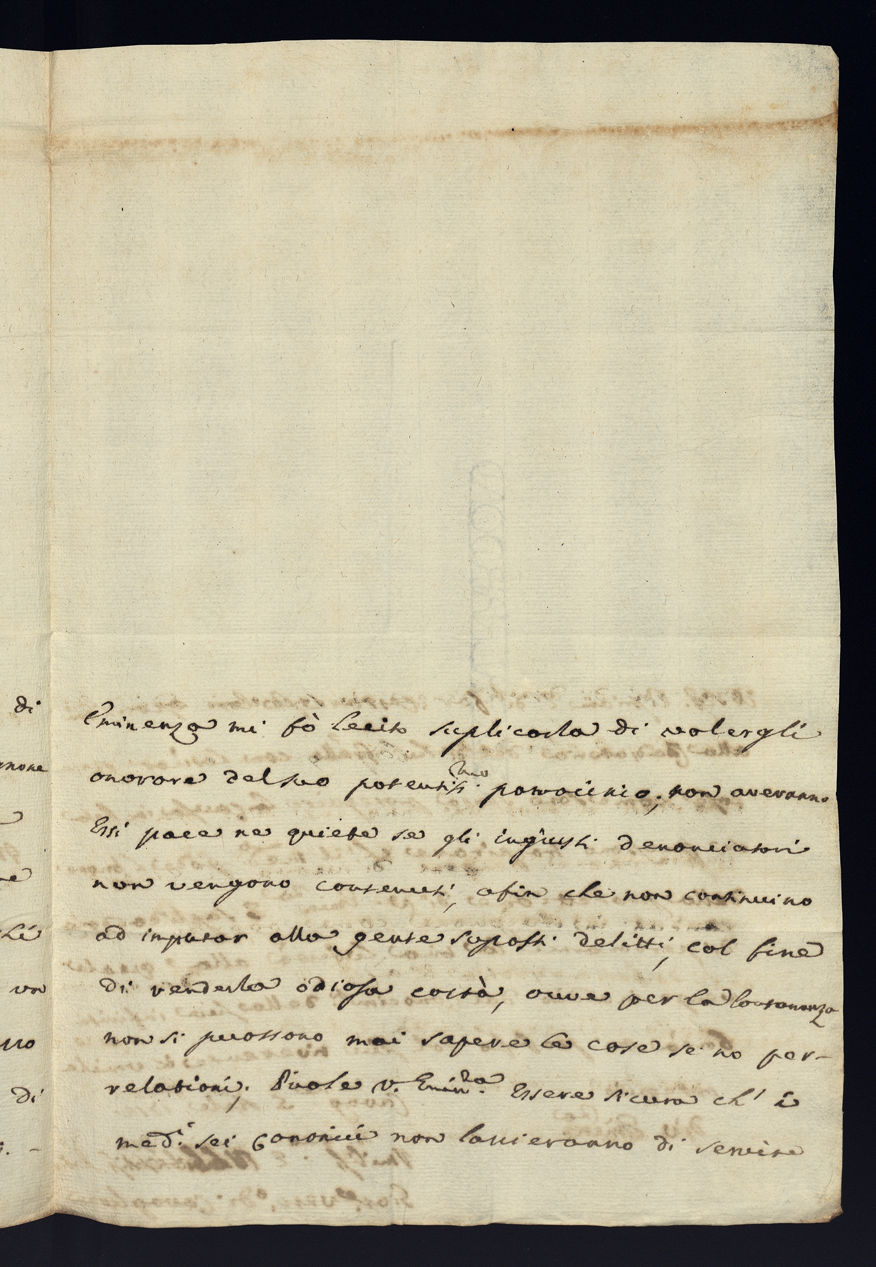 di
Eminenza mi fò lecito suplicarla di volergli
gnone
onorare del suo potentiss.mo patrocinio; non averanno
Essi pace ne quiete se gli ingiusti denonciatori
ne
non vengono contenuti, afin che non continuino
ad inputar alla gente suposti delitti, col fine
di renderla odiosa costà, ove per la lontananza
vn
non si puossono mai sapere le cose se no per-
relationi; Puole V. Emin.za Essere sicura ch' i
di
med.i sei Canonici non lascieranno di servire